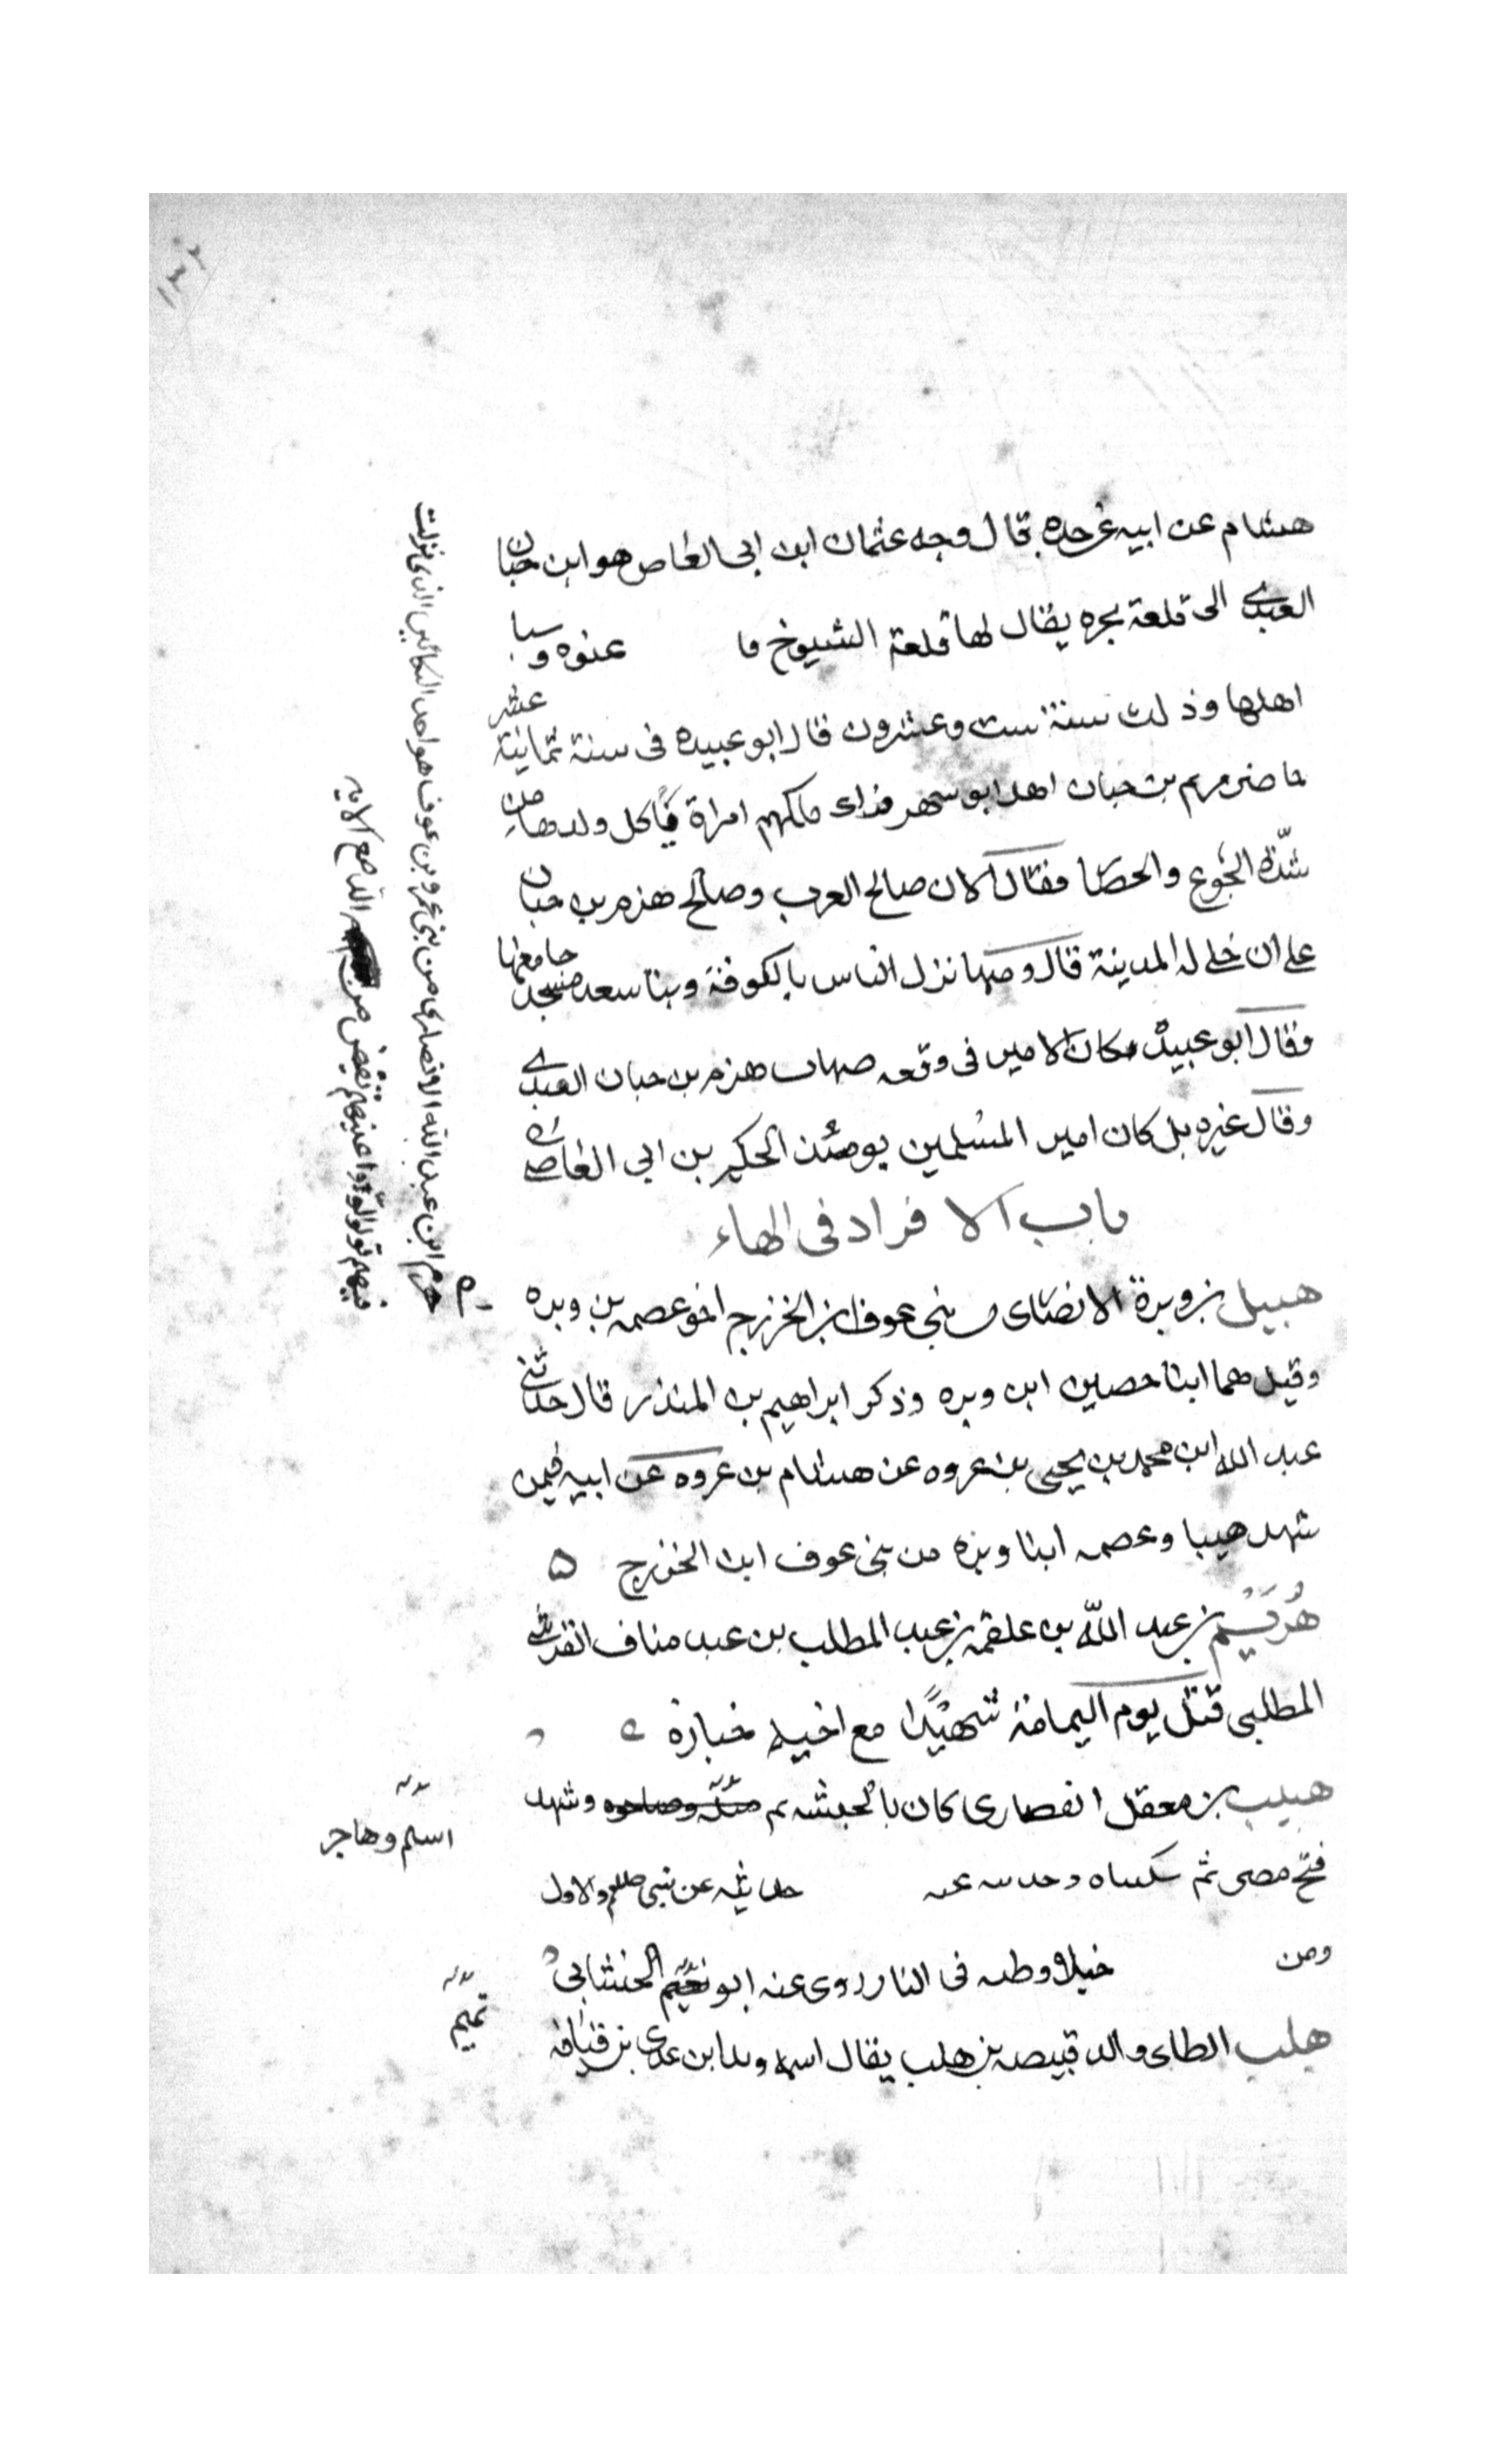 ١٣٢
هشام عن ابيه عن جده قال وجه عثمان ابن ابى العاص هو ابن حبان
العبدى الى قلعة بجره يقال لها قلعة الشيوخ فا عنوه وسبا
اهلها وذلك سنة ست وعشرون قال ابو عبيده فى سنة ثمانية عشر
حاضر هرم بن حبان اهل ابو شهر فراى ملكهم امراة تاكل ولدها من
شدّة الجوع والحصا فقال الان صالح العرب وصالح هزم بن حبان
على ان خلى له المدينة قال وفيها نزل الناس بالكوفة وبنا سعد مسجد جامعها
وقال ابو عبيدة وكان الامير فى وقعه صهاب هزم بن حبان العبدى
وقال غيره بل كان امير المسلمين يومئذ الحكم بن ابى العاصى
باب الافراد فى الهاء
هبيل بن وبرة الانصاى من بنى عوف بن الخزرج اخو عصمه بن وبره
وقيل هما ابنا حصين ابن وبره وذكر ابراهيم بن المنذر قال حدثنى
عبد الله ابن محمد بن يحيى بن عروه عن هشام بن عروه عن ابيه فيمن
شهد هبيبا وعصمه ابنا وبره من بنى عوف ابن الخزرج ٥
هُرَيْم بن عبد اللّه بن علقمه بن عبد المطلب بن عبد مناف القرشى
المطلبى قتل يوم اليمامة شهيدًا مع اخيه خبارة
هبيب بن معقل الغفارى كان بالحبشه ثم وشهد
فتح مصر ثم سكناه وحديثه عند حديثه عن نبى صلعم والاول
ومن خيلا وطه فى النار روى عنه ابو تميم الجيشانى
هلب الطاى والد قبيصه بن هلب يقال اسمه ويلا ابن عدى بن قنافه
هرم ابن عبد الله الانصارى من بنى عمرو بن عوف هو احد البكائين الذى نزلت
فيهم تولوا واعينهم تفيض من الدامع الايه
اسلم وهاجر
تميم